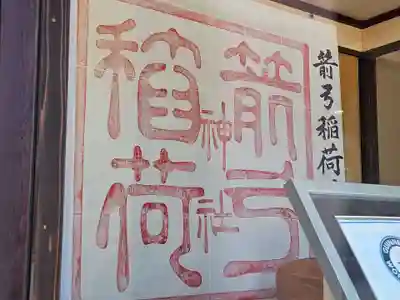 箭弓
稲荷
神社
箭弓稲荷